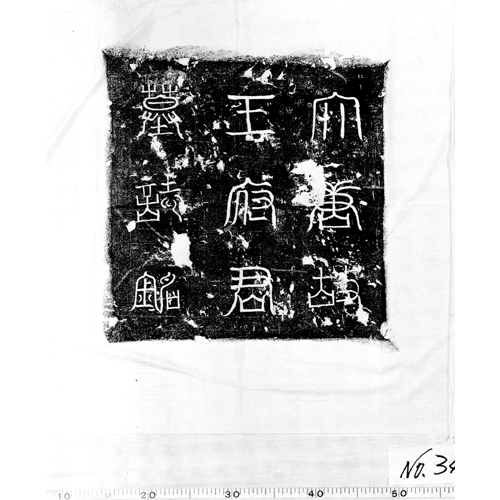 大唐故
王府君
墓誌銘
No. 34
10 20 30 40 50